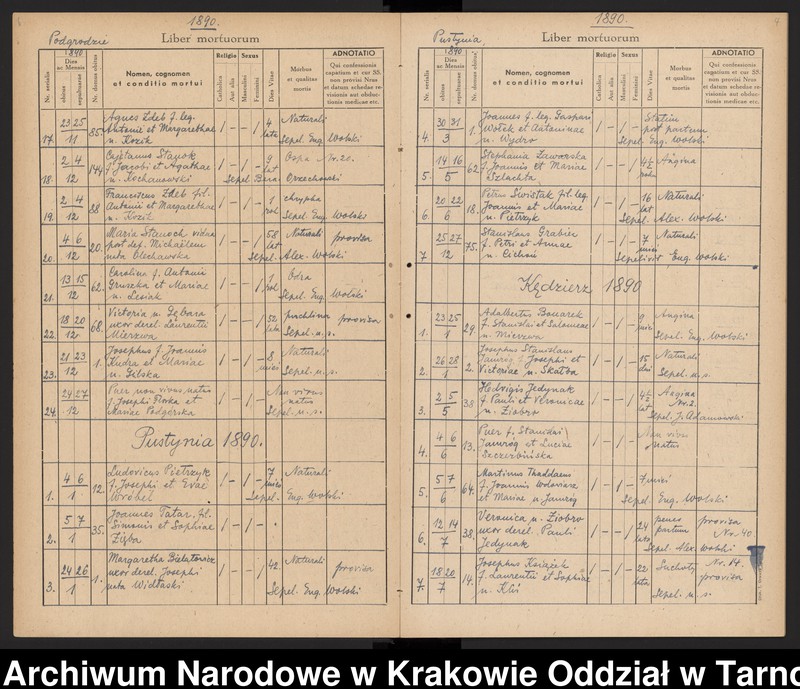 1890.
Podgrodzie Liber mortuorum
Nr. serialis
1890
Dies ac Mensis
obitus
sepulturae
Nr. domus obitus
Nomen, cognomen
et conditio mortui
Religio
Catholica
Aut alia
Sexus
Masculini
Feminini
Dies Vitae
Morbus
et qualitas
mortis
ADNOTATIO
Qui confessionis
capatium et cur SS.
non provisi Nrus
et datum schedae re-
visionis aut obduc-
tionis medicae etc.
17. 23 25 11 85. Agnes Zdeb f. leg.
Antonii et Margarethae
n. Kozik
/ – – / 4 lata Naturali
Sepel. Eug. Wolski
18. 2 4 12 144. Cajetanus Stanok
f. Jacobi et Agathae
n. Kochanowski
/ – / – 9 lat Ospa Nr. 20.
Sepel Bern. Orzechowski
19. 2 4 12 88 Franciscus Zdeb fil.
Antonii et Margarethae
n. Kozik
/ – / – 1 rok chrypka
Sepel Eug. Wolski
20. 4 6 12 20. Maria Stanoch vidua
post def. Michaelem
nata Olechowska
/ – – / 58 lat Naturali provisa
Sepel. Alex. Wolski
21. 13 15 12 62. Carolina f. Antonii
Gruszka et Mariae
n. Lesiak
/ – – / 1 rok Odra
Sepel. Eug. Wolski
22. 18 20 12 68. Victoria n. Gębara
uxor derel. Laurentii
Mierzwa
/ – – / 52 lata puchlina provisa
Sepel. u. s.
23. 21 23 12 1. Josephus f. Joannis
Kudra et Mariae
n. Gelska
/ – / – 8 mieś Naturali
Sepel. u. s.
24. 24 27 12 Puer non vivus natus
f. Josephi Florka et
Mariae Podgórska
/ – / – Non vivus
natus
Sepel. u. s.
Pustynia 1890.
1. 4 6 1 12. Ludovicus Pietrzyk
f. Josephi et Evae
Wrobel
/ – / – 7 mieś Naturali
Sepel. Eug. Wolski
2. 5 7 1 35. Joannes Tatar, fil.
Simonis et Sophiae
Zięba
/ – / –
3. 24 26 1 1. Margaretha Bielatowicz
uxor derel. Josephi
nata Widłaski
/ – – / 42. Naturali provisa
Sepel. Eug. Wolski
1890. 4
Pustynia Liber mortuorum
Nr. serialis
1890
Dies ac Mensis
obitus
sepulturae
Nr. domus obitus
Nomen, cognomen
et conditio mortui
Religio
Catholica
Aut alia
Sexus
Masculini
Feminini
Dies Vitae
Morbus
et qualitas
mortis
ADNOTATIO
Qui confessionis
capatium et cur SS.
non provisi Nrus
et datum schedae re-
visionis aut obduc-
tionis medicae etc.
4. 30 31 3 1. Joannes f. leg. Gaspari
Wołek et Antoninae
n. Wydro
/ – / – Statim
post partum
Sepel. Eug. Wolski
5. 14 16 5 62. Stephania Zaworska
f. Joannis et Mariae
Szlachta
/ – – / 4½ roku Angina
6. 20 22 6 18. Petrus Świstak fil. leg.
Joannis et Mariae
n. Pietrzyk
/ – / – 16 lat Naturali
Sepel. Alex. Wolski
7. 25 27 12 75. Stanislaus Grabiec
f. Petri et Annae
n. Cichoń
/ – / – 7 mieś Naturali
Sepelivit Eug. Wolski
Kędzierz 1890
1. 23 25 1 29. Adalbertus Bonarek
f. Stanislai et Salomeae
n. Mierzwa
/ – / – 9 mieś. Angina
Sepel. Eug. Wolski
2. 26 28 1 2. Josephus Stanislaus
Jamróg f. Josephi et
Victoriae n. Skałba
/ – / – 15 dni Naturali
Sepel. u. s.
3. 2 5 5 38 Hedvigis Jedynak
f. Pauli et Veronicae
n. Ziobro
/ – – / 4½ lat Angina
Nr. 2.
Sepel. J. Adamowski
4. 4 6 6 13. Puer f. Stanislai
Jamróg et Luciae
Szczerbińska
/ – / – Non vivus
natus
5. 5 7 6 64. Martinus Thaddaeus
f. Joannis Wodoviarz
et Mariae n. Jamróg
/ – / – 7 mieś
Sepel. Eug. Wolski
6. 12 14 7 38. Veronica n. Ziobro
uxor derel. Pauli
Jedynak
/ – – / 24 lata penes
partum provisa
Nr. 40.
Sepel. Alex. Wolski
7. 18 20 7 14. Josephus Książek
f. Laurentii et Sophiae
n. Kliś
/ – / – 22 lata Suchoty Nr. 14.
provisa
Sepel. u. s.
Archiwum Narodowe w Krakowie Oddział w Tarno